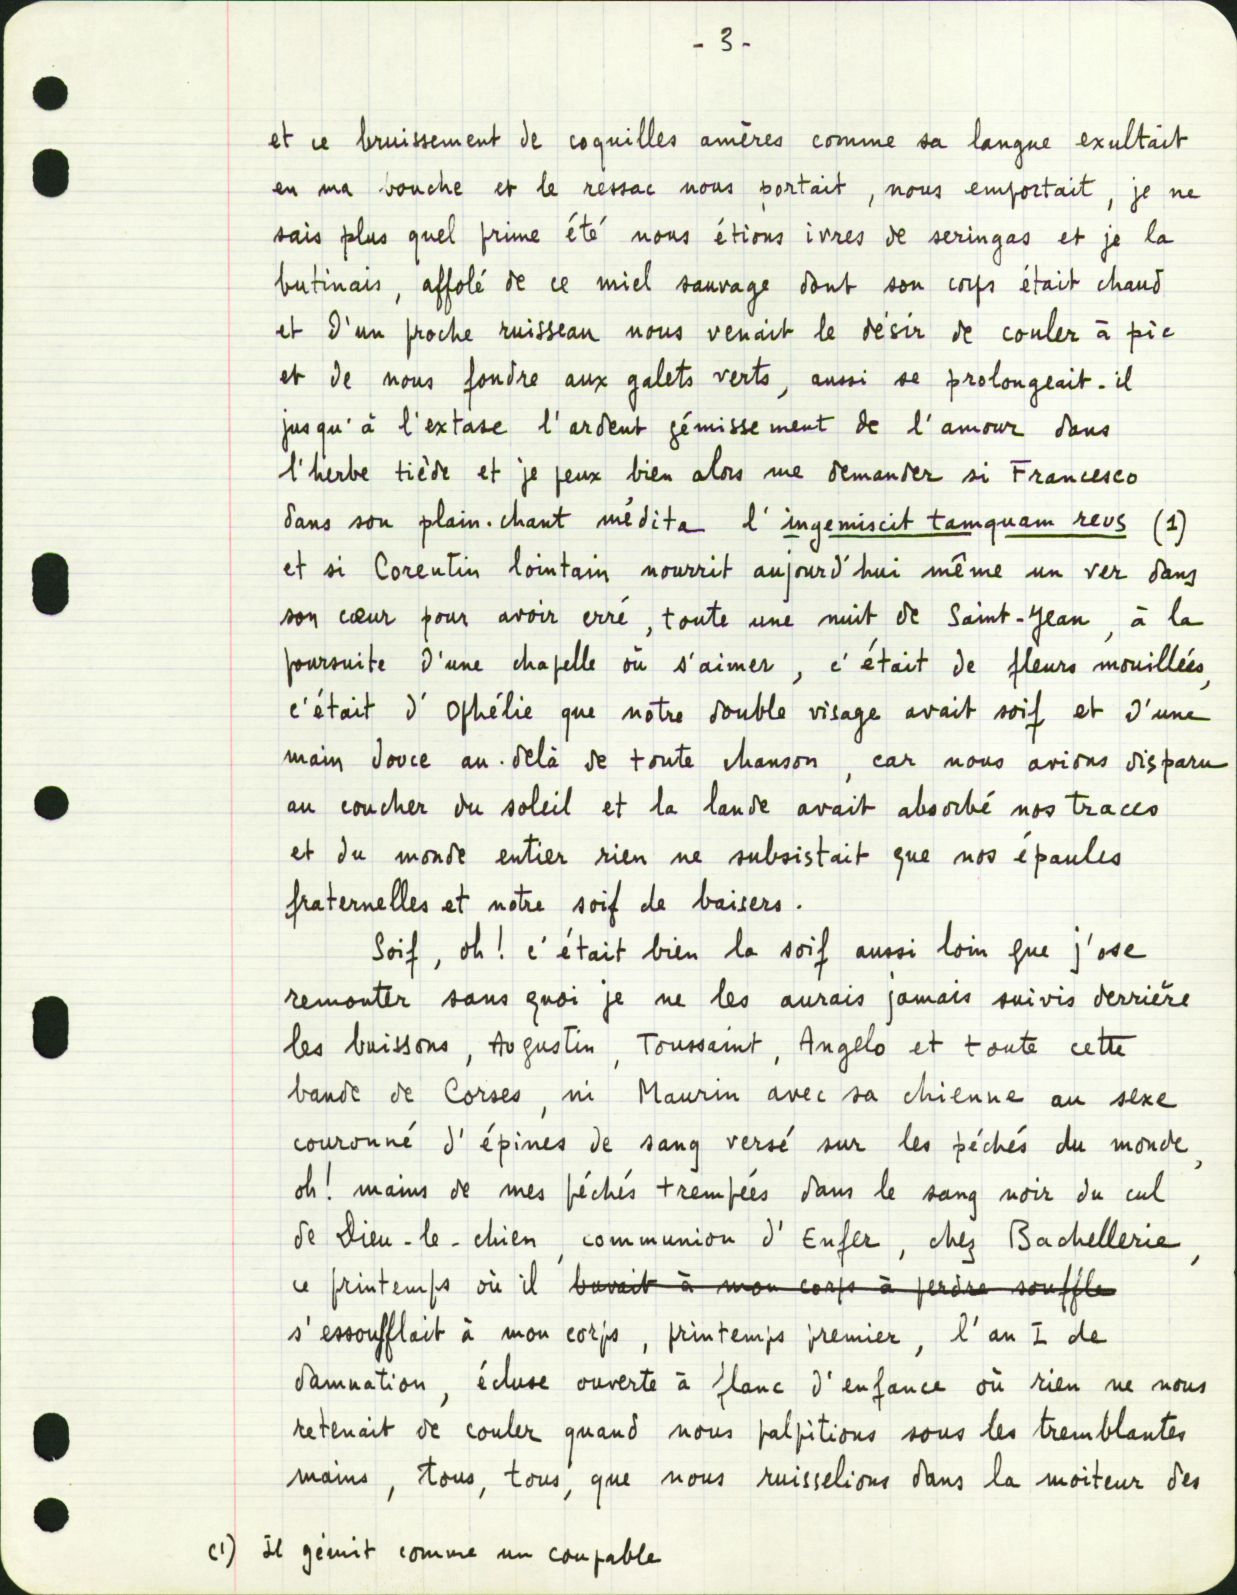 - 3 -
et ce bruissement de coquilles amères comme sa langue exultait
en ma bouche et le ressac nous portait, nous emportait, je ne
sais plus quel prime été nous étions ivres de seringas et je la
butinais, affolé de ce miel sauvage dont son corps était chaud
et d'un proche ruisseau nous venait le désir de couler à pic
et de nous fondre aux galets verts, aussi se prolongeait-il
jusqu'à l'extase l'ardent gémissement de l'amour dans
l'herbe tiède et je peux bien alors me demander si Francesco
dans son plain-chant médita l'ingemiscit tamquam reus (1)
et si Corentin lointain nourrit aujourd'hui même un ver dans
son cœur pour avoir erré, toute une nuit de Saint-Jean, à la
poursuite d'une chapelle où s'aimer, c'était de fleurs mouillées,
c'était d'Ophélie que notre double visage avait soif et d'une
main douce au-delà de toute chanson, car nous avions disparu
au coucher du soleil et la lande avait absorbé nos traces
et du monde entier rien ne subsistait que nos épaules
fraternelles et notre soif de baisers.
Soif, oh! c'était bien la soif aussi loin que j'ose
remonter sans quoi je ne les aurais jamais suivis derrière
les buissons, Augustin, Toussaint, Angelo et toute cette
bande de Corses, ni Maurin avec sa chienne au sexe
couronné d'épines de sang versé sur les péchés du monde,
oh! mains de mes péchés trempées dans le sang noir du cul
de Dieu-le-chien, communion d'Enfer, chez Bachellerie,
ce printemps où il buvait à mon corps à perdre souffle
s'essoufflait à mon corps, printemps premier, l'an I de
damnation, écluse ouverte à flanc d'enfance où rien ne nous
retenait de couler quand nous palpitions sous les tremblantes
mains, tous, tous, que nous ruisselions dans la moiteur des
(1) Il gémit comme un coupable